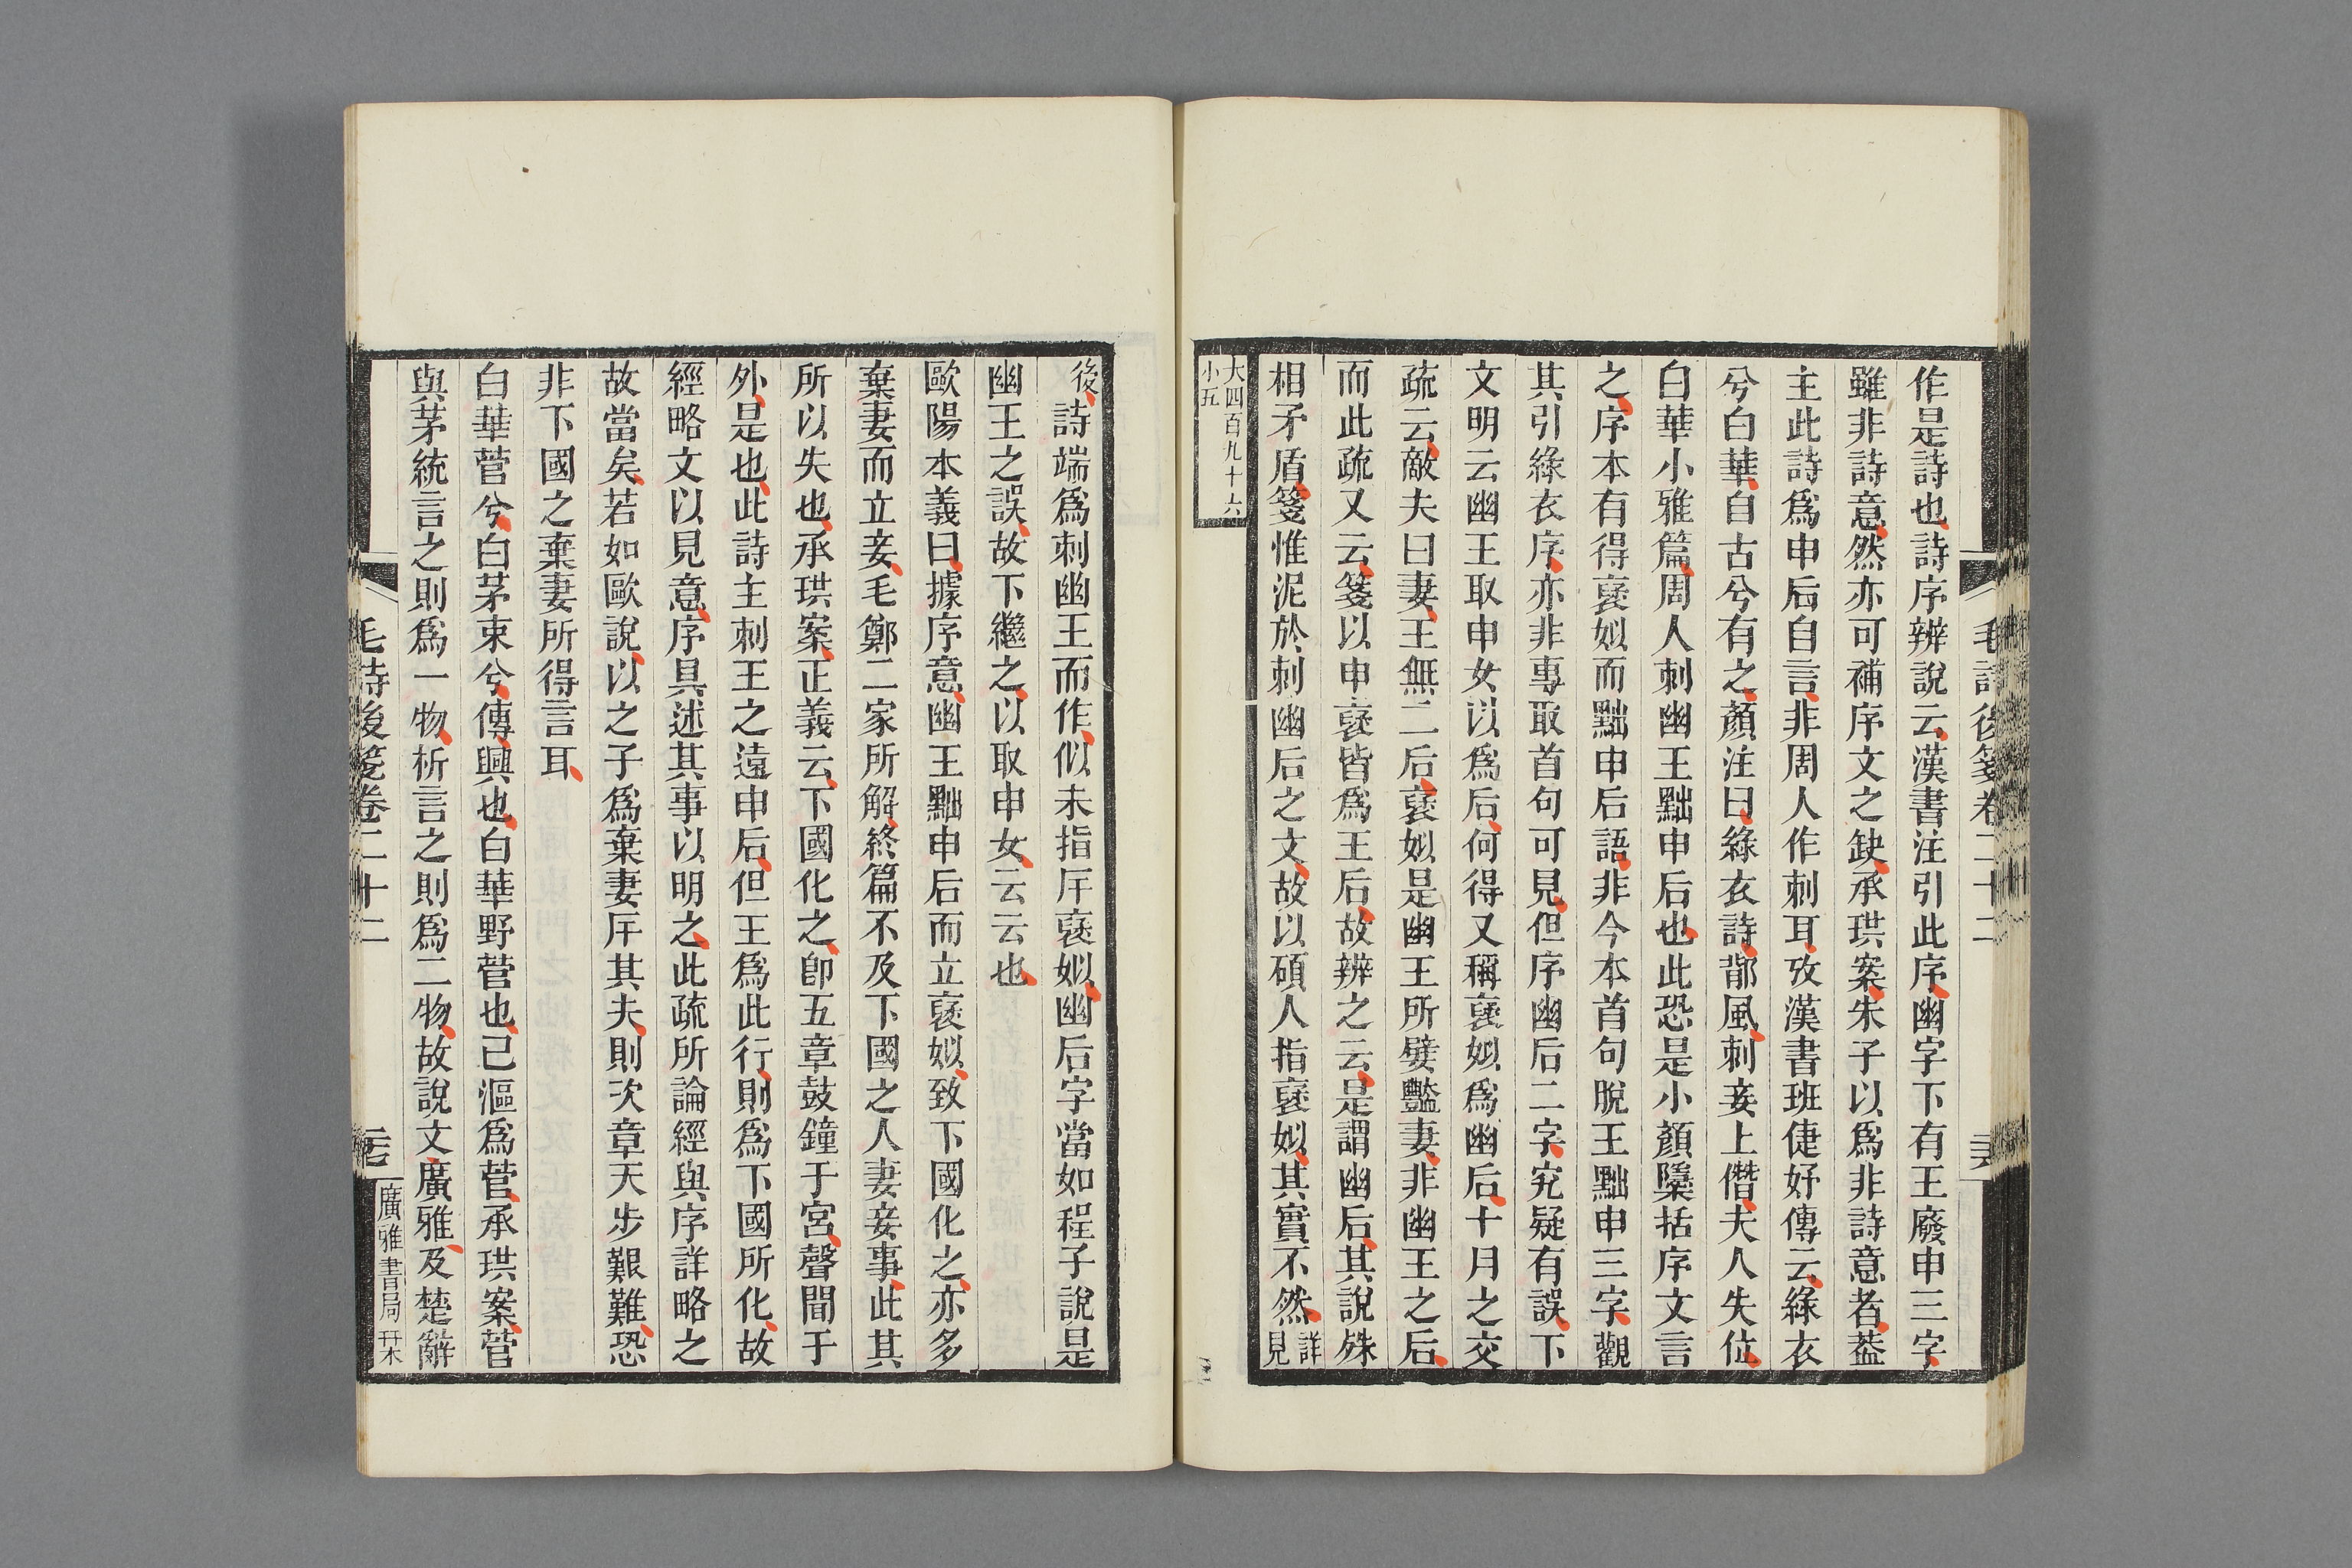 作是詩也詩序辨說云漢書注引此序幽字下有王廢申三字
雖非詩意然亦可補序文之缺承珙案朱子以爲非詩意者葢
主此詩爲申后自言非周人作刺耳攷漢書班倢妤傳云綠衣
兮白華自古兮有之顏注曰綠衣詩鄁風刺妾上僭夫人失位
白華小雅篇周人刺幽王黜申后也此恐是小顏櫽括序文言
之序本有得襃姒而黜申后語非今本首句脫王黜申三字觀
其引綠衣序亦非專取首句可見但序幽后二字究疑有誤下
文明云幽王取申女以爲后何得又稱襃姒爲幽后十月之交
疏云敵夫曰妻王無二后襃姒是幽王所嬖豔妻非幽王之后
而此疏又云箋以申襃皆爲王后故辨之云是謂幽后其說殊
相矛盾箋惟泥於刺幽后之文故以碩人指襃姒其實不然詳
見
大四百九十六
小五
毛詩後箋卷二十二
後詩端爲刺幽王而作似未指斥襃姒幽后字當如程子說是
幽王之誤故下繼之以取申女云云也
歐陽本義曰據序意幽王黜申后而立襃姒致下國化之亦多
棄妻而立妾毛鄭二家所解終篇不及下國之人妻妾事此其
所以失也承珙案正義云下國化之卽五章鼓鐘于宮聲聞于
外是也此詩主刺王之遠申后但王爲此行則爲下國所化故
經略文以見意序具述其事以明之此疏所論經與序詳略之
故當矣若如歐說以之子爲棄妻斥其夫則次章天步艱難恐
非下國之棄妻所得言耳
白華菅兮白茅束兮傳興也白華野菅也已漚爲菅承珙案菅
與茅統言之則爲一物析言之則爲二物故說文廣雅及楚辭
毛詩後箋卷二十二
廣雅書局栞